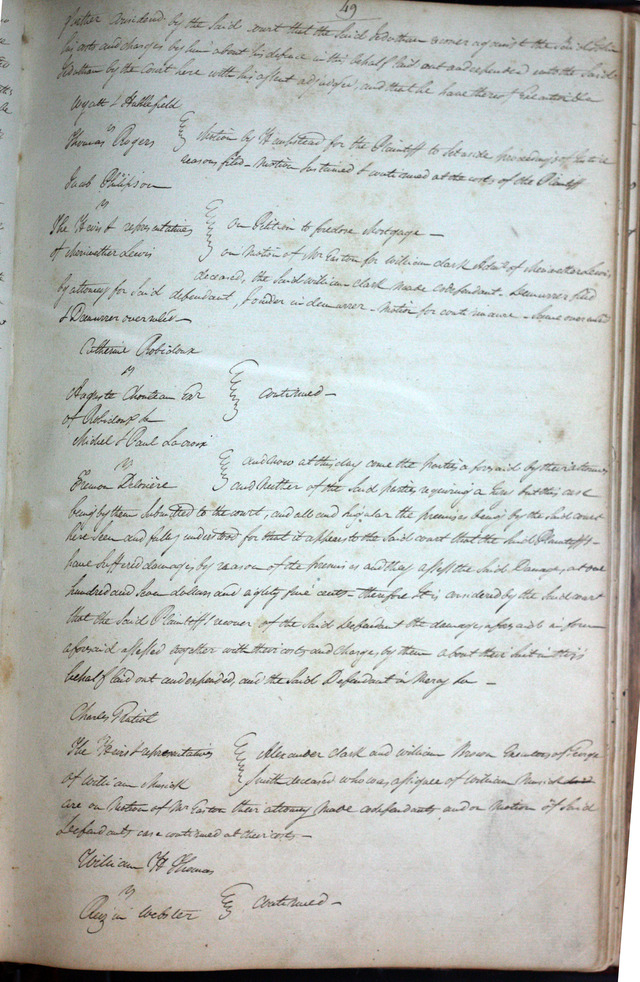 49
further considered by the said court that the said Jonathan recover against the said John
his costs and charges by him about his defence in this behalf laid out and expended unto the said
Jonathan by the Court here with his assent adjudged, and that he have thereof Execution
Wyatt & Hubblefield
vs
Thomas Rogers
Motion by Hempstead for the Plaintiff to set aside proceedings of Justice
reasons filed - Motion sustained & continued at the costs of the Plaintiff
Jacob Philipson
vs
The Heirs & representatives
of Meriwether Lewis
On Petition to foreclose Mortgage -
on Motion of Mr Easton for William Clark Admr of Meriwether Lewis,
deceased, the said William Clark made codefendant - Demurrer filed
by attorney for said defendant, & in demurrer - Motion for continuance - Same overruled
& Demurrer overruled -
Catherine Robidoux
vs
Auguste Chouteau Exr
of Robidoux
continued -
Michel & Paul Lacroix
vs
Devière
and now at this day come the parties aforesaid by their attornies
and neither of the said parties requiring a Jury but this case
being by them submitted to the court, and all and singular the premises being by the said court
here seen and fully understood for that it appears to the said court that the said Plaintiffs
have suffered damages by reason of the premises and they assess the said Damages, at one
hundred and seven dollars and eighty five cents - therefore it is considered by the said court
that the said Plaintiffs recover of the said Defendant the damages aforesaid in form
aforesaid assessed together with their costs and charges, by them about their suit in this
behalf laid out and expended, and the said Defendant in Mercy &c -
Charles Gratiot
The Heirs & representatives
of William Musick
Alexander Clark and William Brown Executors of George
Smith deceased who was assignee of William Musick
are on Motion of Mr Easton their attorney made codefendants and on Motion of said
Defendants case continued at their costs -
William H Thomas
vs
Webster
continued -